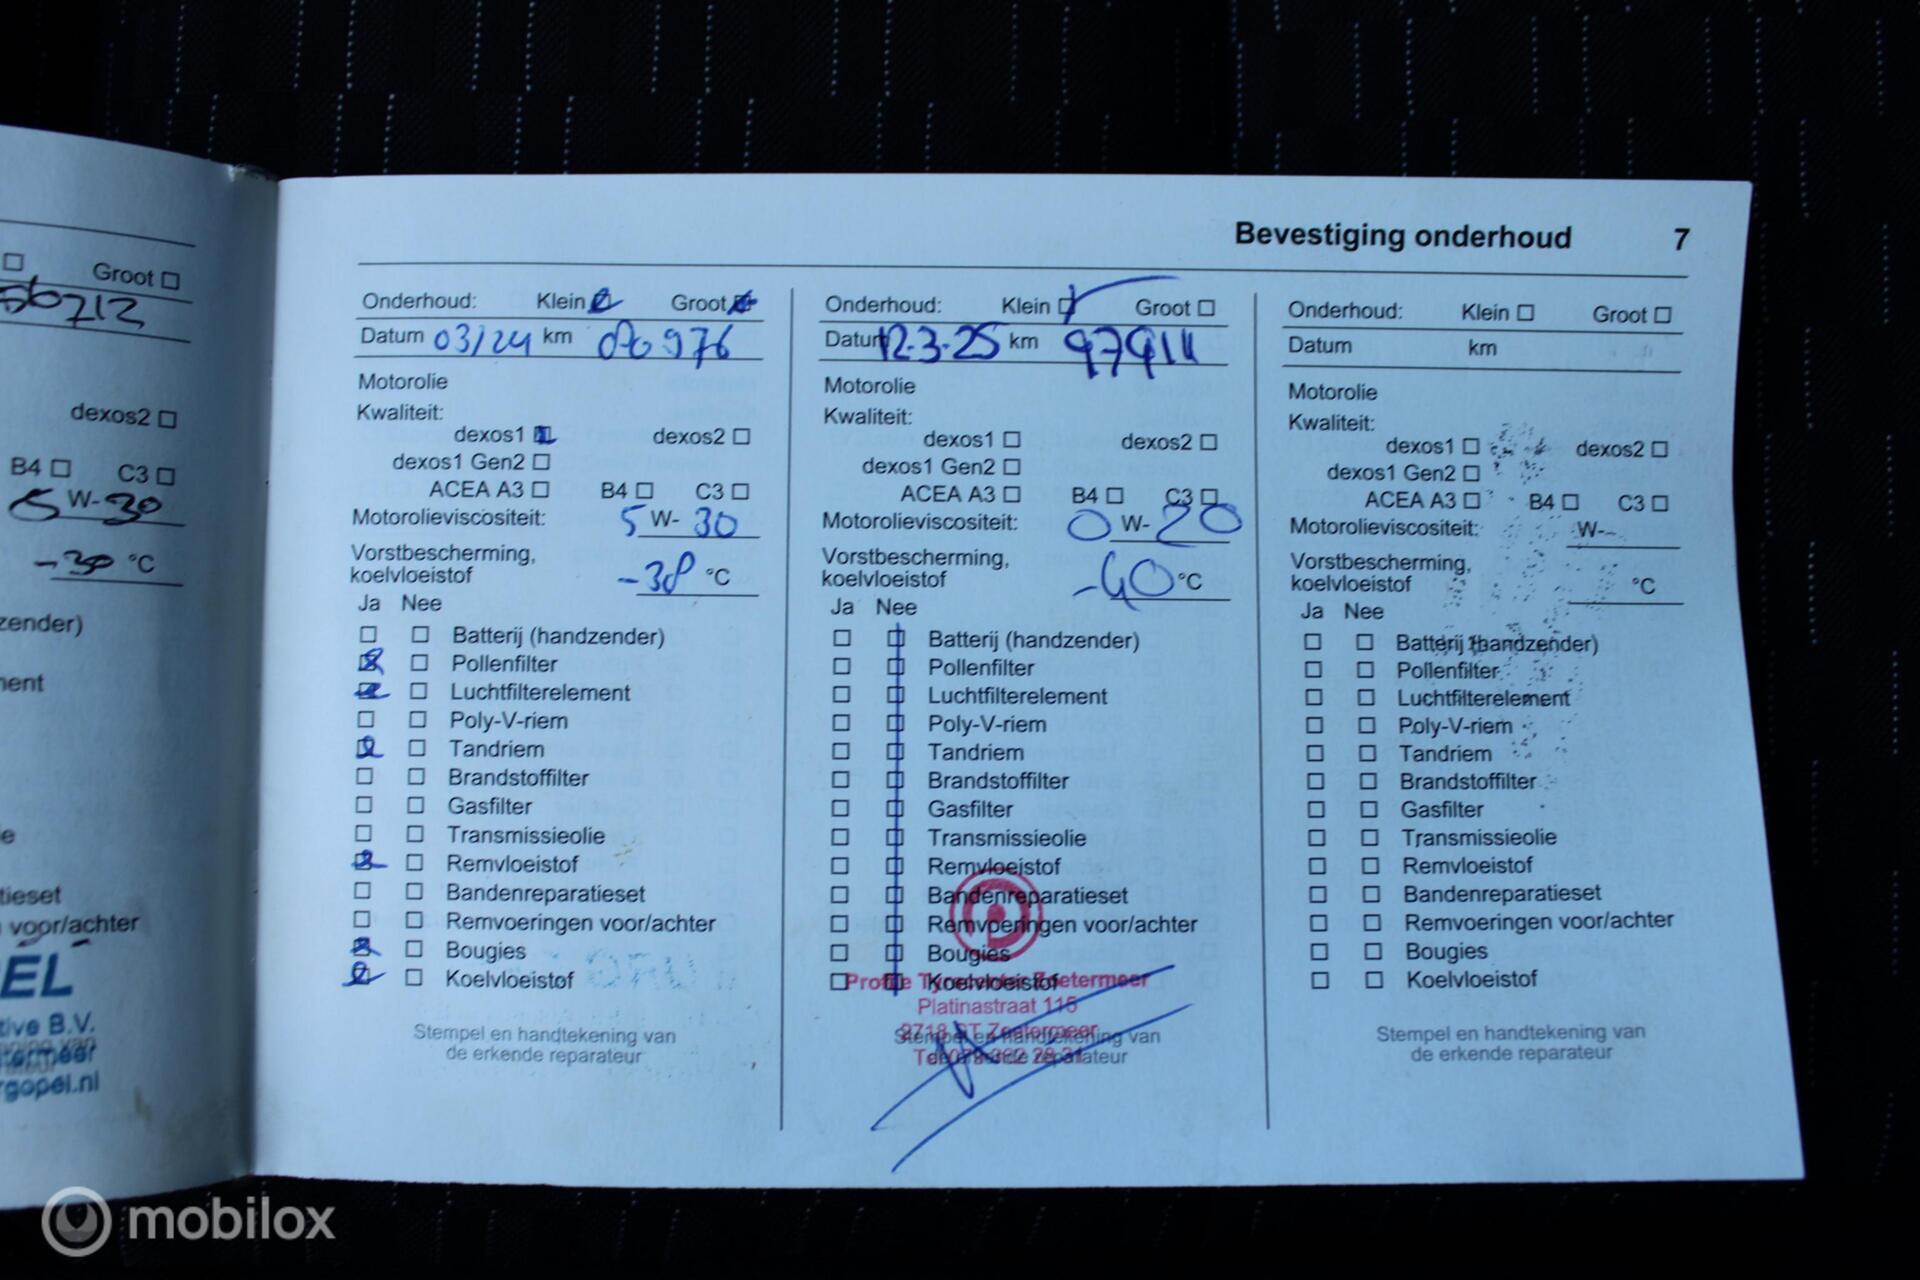 Groot
56712
dexos2
B4 C3
5 W-30
-30 °C
zender)
ment
tieset
voor/achter
EL
tive B.V.
termeer
rgopel.nl
Bevestiging onderhoud 7
Onderhoud: Klein Groot
Datum 03/24 km 080976
Motorolie
Kwaliteit:
dexos1 dexos2
dexos1 Gen2
ACEA A3 B4 C3
Motorolieviscositeit: 5 W-30
Vorstbescherming,
koelvloeistof -38 °C
Ja Nee
Batterij (handzender)
Pollenfilter
Luchtfilterelement
Poly-V-riem
Tandriem
Brandstoffilter
Gasfilter
Transmissieolie
Remvloeistof
Bandenreparatieset
Remvoeringen voor/achter
Bougies
Koelvloeistof
Stempel en handtekening van
de erkende reparateur
Onderhoud: Klein Groot
Datum 12-3-25 km 97914
Motorolie
Kwaliteit:
dexos1 dexos2
dexos1 Gen2
ACEA A3 B4 C3
Motorolieviscositeit: 0 W-20
Vorstbescherming,
koelvloeistof -40 °C
Ja Nee
Batterij (handzender)
Pollenfilter
Luchtfilterelement
Poly-V-riem
Tandriem
Brandstoffilter
Gasfilter
Transmissieolie
Remvloeistof
Bandenreparatieset
Remvoeringen voor/achter
Bougies
Koelvloeistof
Profile Tyrecenter Zoetermeer
Platinastraat 115
Zoetermeer
Stempel en handtekening van
de erkende reparateur
Onderhoud: Klein Groot
Datum km
Motorolie
Kwaliteit:
dexos1 dexos2
dexos1 Gen2
ACEA A3 B4 C3
Motorolieviscositeit: W-
Vorstbescherming,
koelvloeistof °C
Ja Nee
Batterij (handzender)
Pollenfilter
Luchtfilterelement
Poly-V-riem
Tandriem
Brandstoffilter
Gasfilter
Transmissieolie
Remvloeistof
Bandenreparatieset
Remvoeringen voor/achter
Bougies
Koelvloeistof
Stempel en handtekening van
de erkende reparateur
mobilox